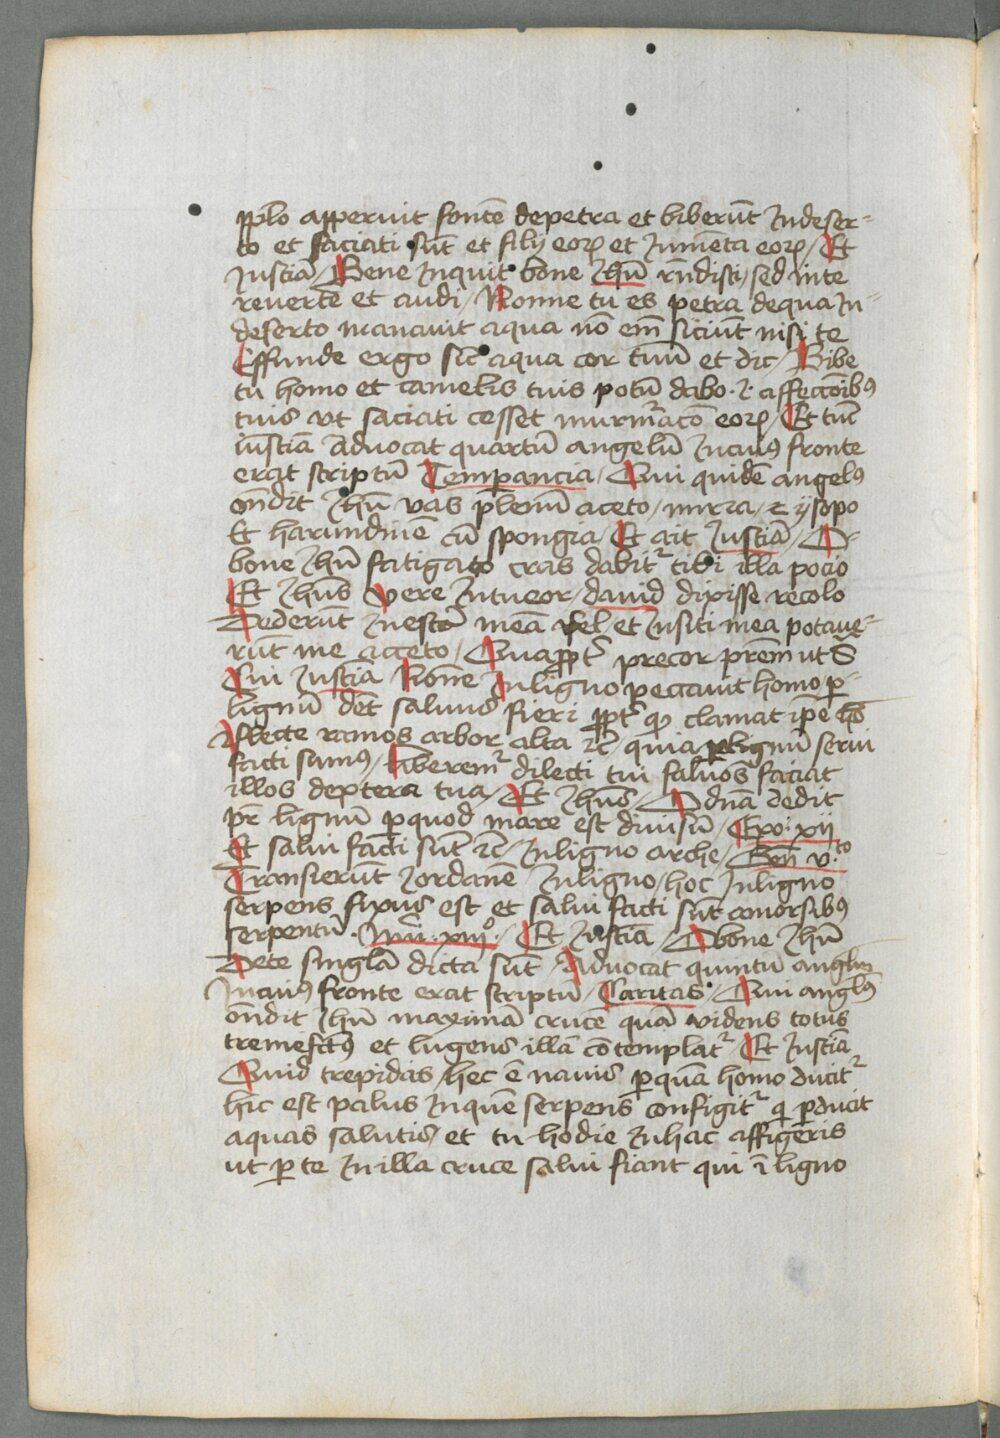 pplo apperuit fontē depetra et biberūt Indeser=
to et saciati sūt et filij eoꝝ et Iumēta eoꝝ / Et
Iusticiā / Bene Inquit bone Ihū rn̄disti / sed inte
reuerte et audi / Nonne tu es petra dequa In=
deserto manauit aqua nō em̄ siciūt nisi te
Effunde ergo sic̄ aqua cor tuū et dic / Bibe
tu homo et camelis tuis potū dabo .i. affeccōibꝰ
tuis vt saciati cesset murmᵃacō eoꝝ / Et tūc
iusticiā Aduocat quartū angelū Incuiꝰ fronte
erat scriptū Temp̄ancia / Qui quidē angelꝰ
ondit Ihū vas plenū aceto / mirra / et ysopo
Et harundinē cū spongia / Et ait Iusticiā / O
bone Ihū fatigato cras dabitᷣ tibi illa pocio
Et Ihūs vere Intueor / dauid dixisse recolo
Dederūt Inescā meā fel et Insiti mea potaue=
rūt me acceto / Quapptᷣ precor prēm ut S̄
Cui Iusticia Nonne Inligno peccauit homo p̱=
lignū dēt saluus fieri pptᷣ qꝫ clamat ip̄e hō
Flecte ramos arbor alta rc̄ quia ꝑlignū serui
facti sumꝰ / liberemᷣ dilecti tui saluos faciat
illos dextera tua / Et Ihūs / O dn̄a dedit
pr̄ lignū ꝑquod mare est diuisū / Exoi xii
Et salui facti sūt rc̄ / Inligno arche / Gen̄ v.to
Transierūt Iordanē Inligno / hoc Inligno
serpens fixus est et salui facti sūt amorsibꝰ
serpentū . Nūi . xiiiº. / Et Iusticiā / O bone Ihū
Dete singlā dicta sūt / Aduocat quintū anglm
Incuiꝰ fronte erat scriptū / Caritas . / Qui anglꝰ
ōndit Ihū maximā crucē quā videns totus
tremefctꝰ et lugens illā cōtemplatᷣ / Et Iusticiā
Quid trepidas / hec ē nauis ꝑquā homo ducitᷣ
hic est palus Inquē serpens configitᷣ qi ꝑducit
aquas salutis / et tu hodie Inhac affigeris
ut ꝑ te Inilla cruce salui fiant qui ī ligno